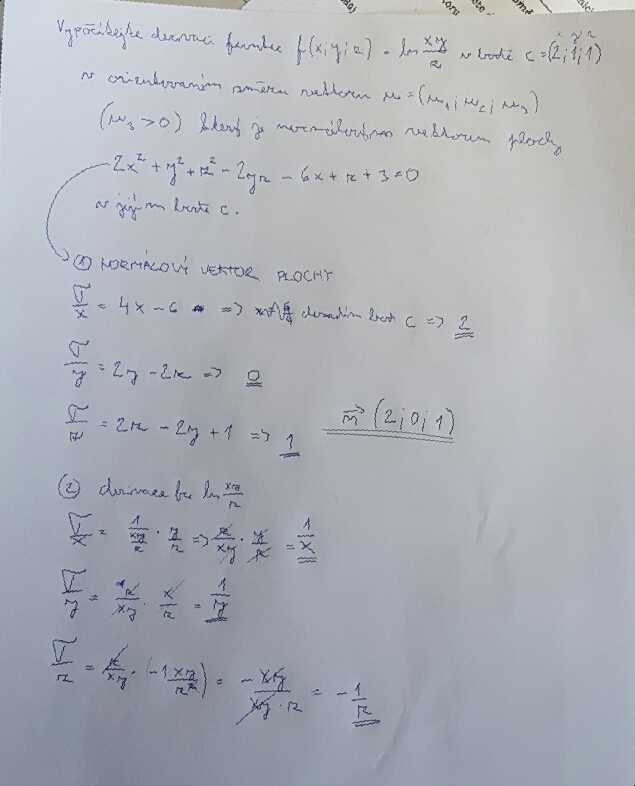 Vypočítejte derivaci funkce f(x;y;z) = ln xy/z v bodě c = (2;1;1)
v orientovaném směru vektoru u = (u₁; u₂; u₃)
(u₃ > 0) který je normálovým vektorem plochy
2x² + y² + z² - 2yz - 6x + z + 3 = 0
v jejím bodě c.
① NORMÁLOVÝ VEKTOR PLOCHY
∇/x = 4x - 6 => dosadím bod c => 2
∇/y = 2y - 2z => 0
∇/z = 2z - 2y + 1 => 1 n⃗ (2;0;1)
② derivace fce ln xy/z
∇/x = 1/(xy/z) · y/z => z/xy · y/z = 1/x
∇/y = z/xy · x/z = 1/y
∇/z = z/xy · (-1 xy/z²) = - xy/(xy · z) = - 1/z